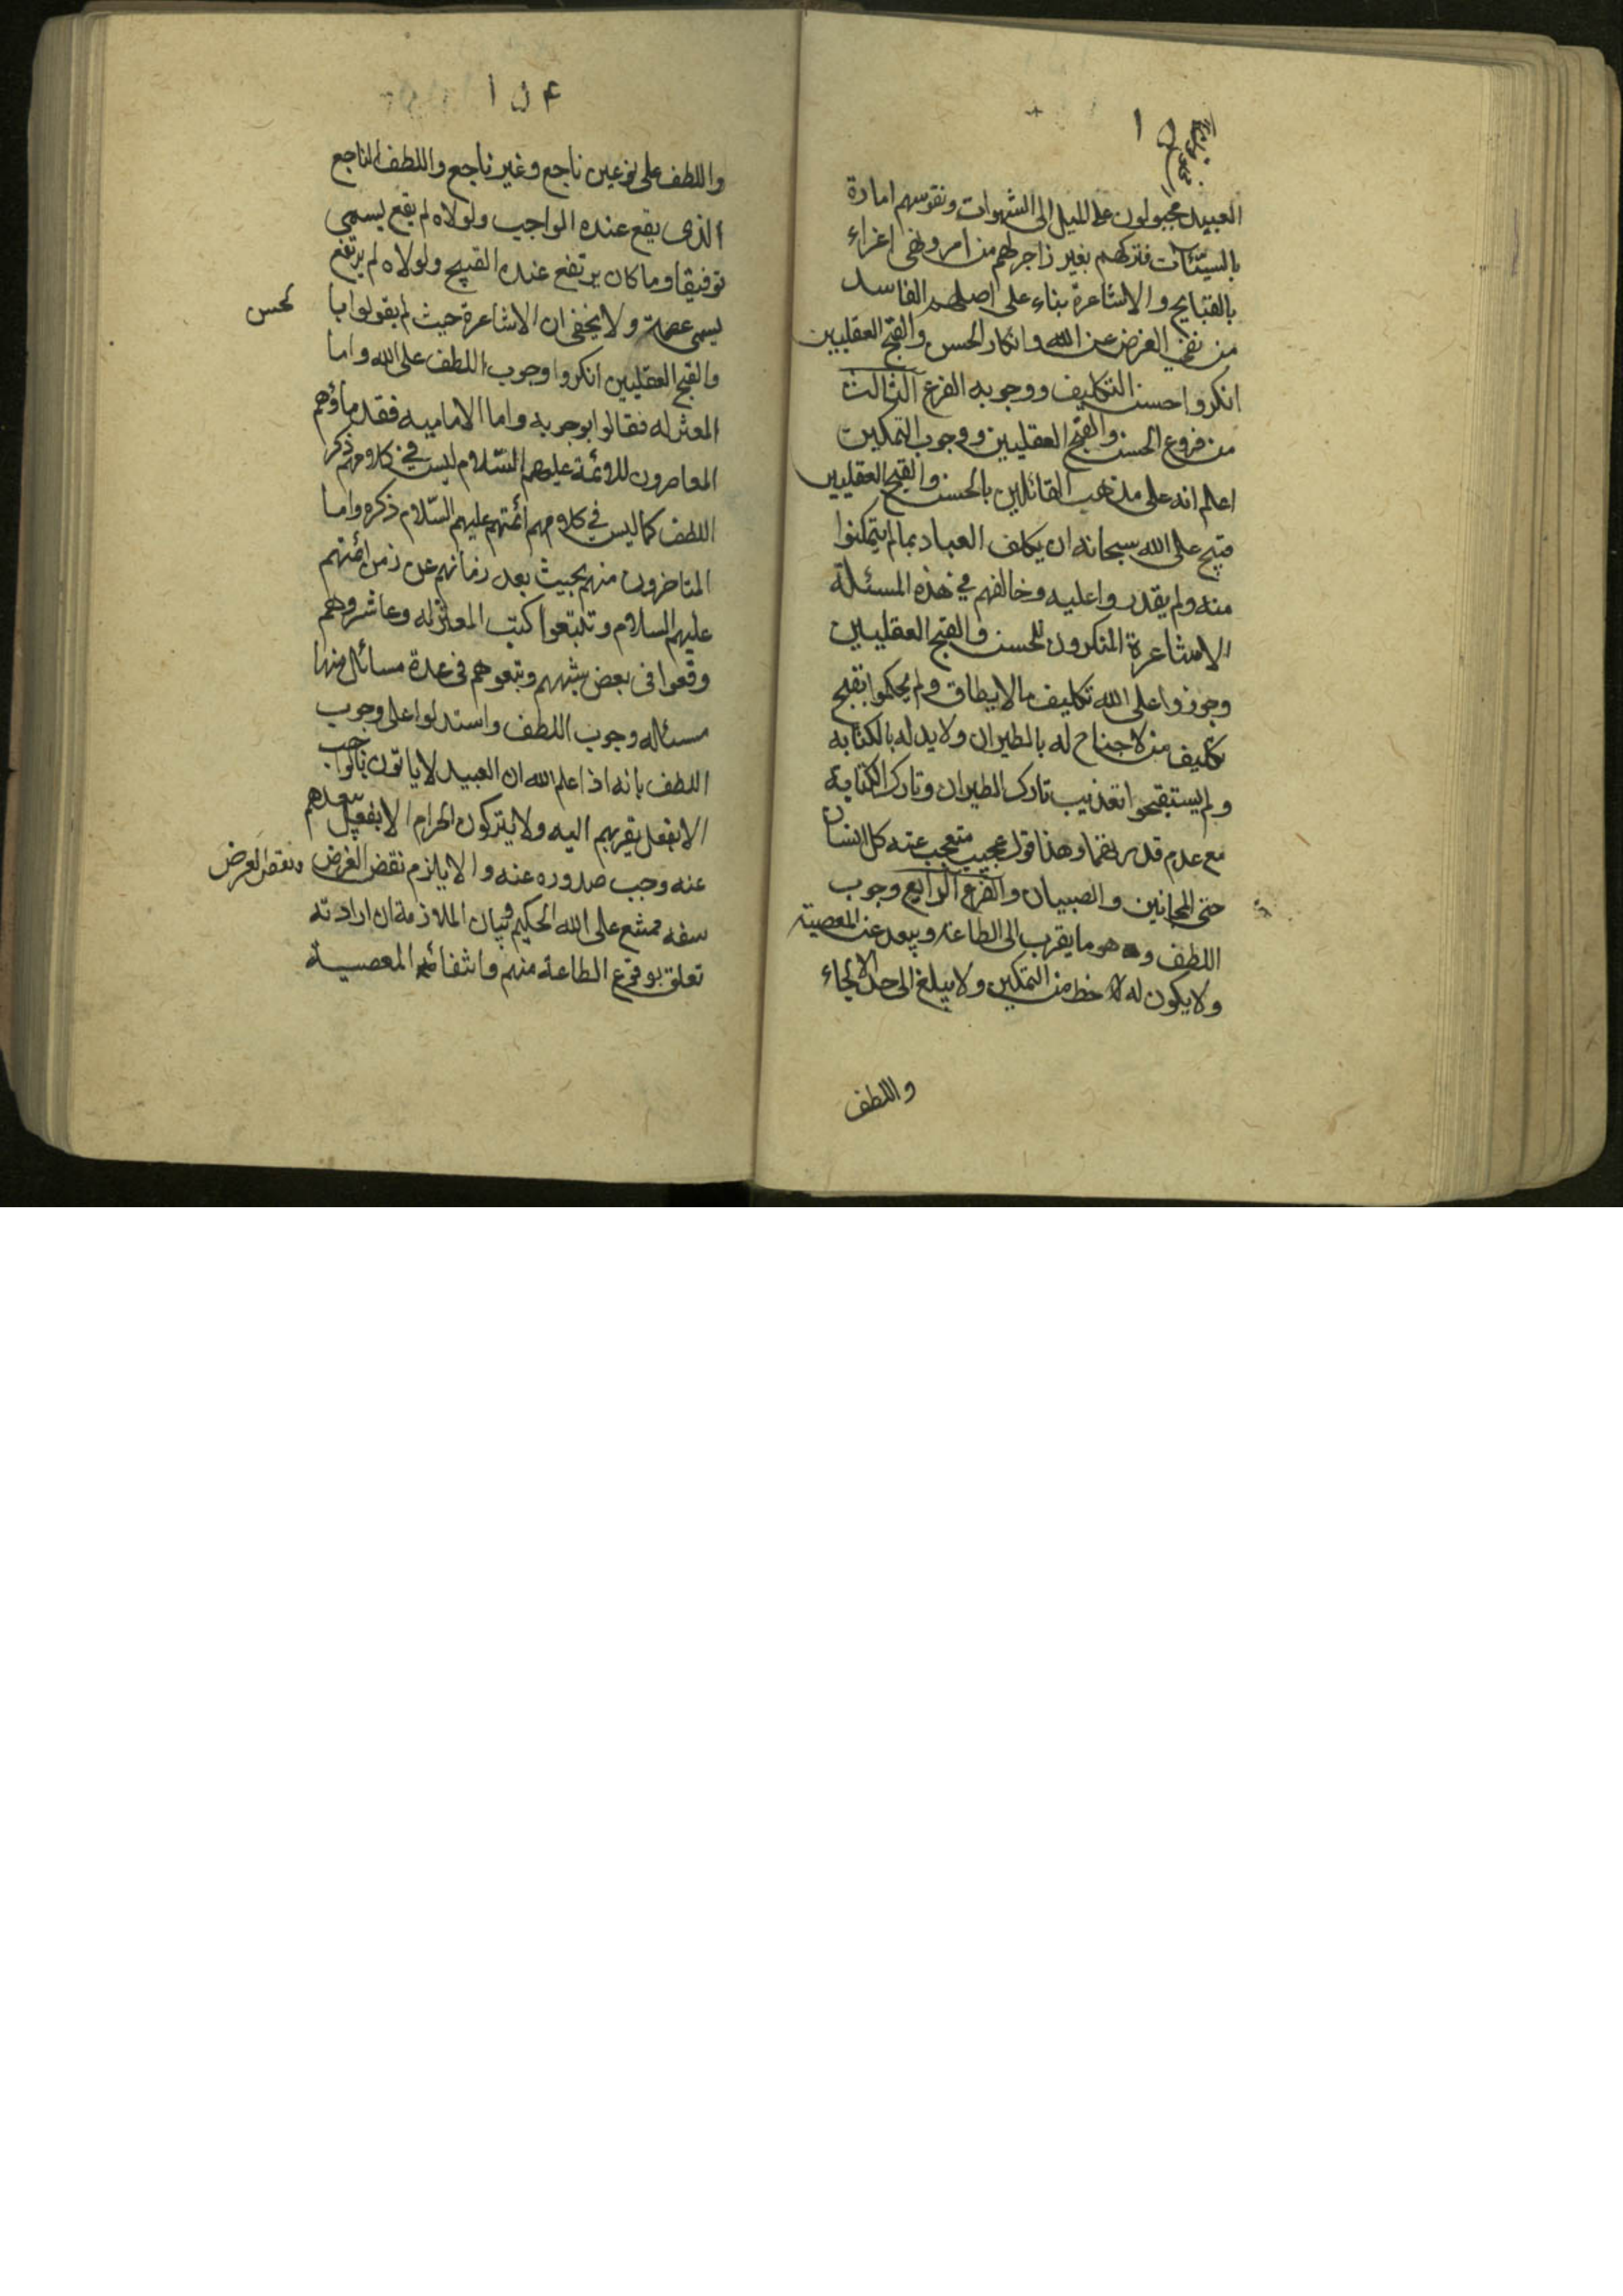 العبيد مجبولون على الميل الى الشهوات ونفوسهم امارة
بالسيّئات فتركهم بغير زاجر لهم من امر ونهى اغراء
بالقبايح والاشاعرة بناء على اصلهم الفاسد
من نفى الغرض عن الله وانكار الحسن والقبح العقليين
انكروا حسن التكليف ووجوبه الفرع الثالث
من فروع الحسن والقبح العقليين ووجوب التمكين
اعلم انه على مذهب القائلين بالحسن والقبح العقليين
قبح على الله سبحانه ان يكلف العباد بما لم يتمكنوا
منه ولم يقدروا عليه وخالفهم في هذه المسئلة
الاشاعرة المنكرون للحسن والقبح العقليين
وجوزوا على الله تكليف مالا يطاق ولم يحكموا بقبح
تكليف من لا جناح له بالطيران ولا يد له بالكتابة
ولم يستقبحوا تعذيب تارك الطيران وتارك الكتابة
مع عدم قدرتهما وهذا قول عجيب متعجب عنه كل انسان
حتى المجانين والصبيان والفرع الرابع وجوب
اللطف و هو ما يقرب الى الطاعة ويبعد عن المعصية
ولا يكون له حظ من التمكين ولا يبلغ الى حد الالجاء
واللطف
١٥٤
واللطف على نوعين ناجع وغير ناجع واللطف الناجع
الذى يقع عنده الواجب ولولاه لم يقع يسمى
توفيقا وما كان يرتفع عنده القبيح ولولاه لم يرتفع
يسمى عصمة ولا يخفى ان الاشاعرة حيث لم يقولوا با لحسن
والقبح العقليين انكروا وجوب اللطف على الله واما
المعتزله فقالوا بوجوبه واما الاماميه فقدماؤهم
المعاصرون للائمة عليهم السّلام ليس في كلامهم ذكر
اللطف كما ليس في كلام ائمتهم عليهم السّلام ذكره واما
المتاخرون منهم بحيث بعد زمانهم عن زمن ائمتهم
عليهم السلام وتتبعوا كتب المعتزله وعاشروهم
وقعوا فى بعض شبههم وتبعوهم فى عدة مسائل منها
مسئله وجوب اللطف واستدلوا على وجوب
اللطف بانه اذا علم الله ان العبيد لا ياتون بالواجب
الا بفعل يقربهم اليه ولا يتركون الحرام الا بفعل يبعدهم
عنه وجب صدوره عنه والا يلزم نقض الغرض ونقض الغرض
سفه ممتنع على الله الحكيم وبيان الملازمة ان ارادته
تعلق بوقوع الطاعة منهم وانتفاء المعصية